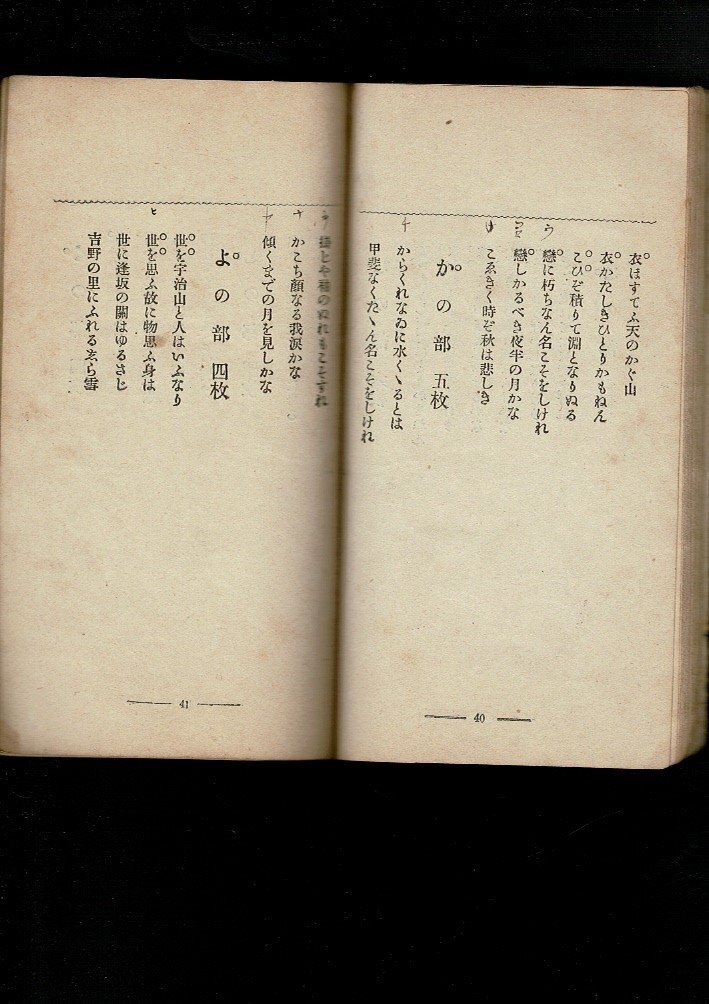 衣はすてふ天のかぐ山
衣かたしきひとりかもねん
こひぞ積りて淵となりぬる
戀に朽ちなん名こそをしけれ
戀しかるべき夜半の月かな
こゑきく時ぞ秋は悲しき
かの部 五枚
からくれなゐに水くゝるとは
甲斐なくたゝん名こそをしけれ
40
や袖のぬれもこそすれ
かこち顏なる我淚かな
傾くまでの月を見しかな
よの部 四枚
世を宇治山と人はいふなり
世を思ふ故に物思ふ身は
世に逢坂の關はゆるさじ
吉野の里にふれるゑら雪
41